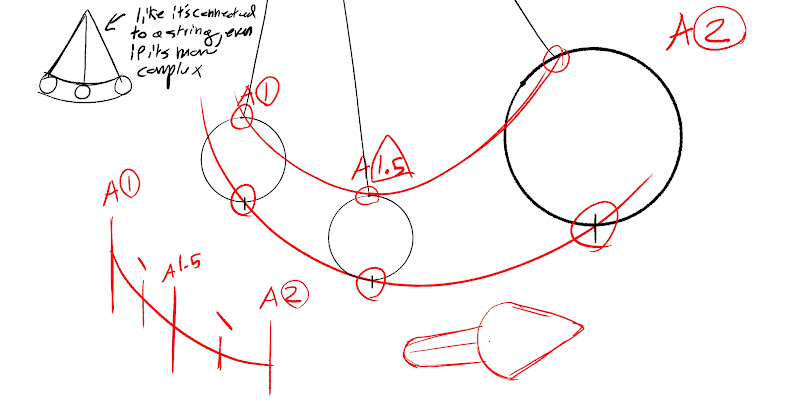 like it's connected
to a string, even
if its more
complex
A 2
A 1
A 1.5
A 1
A 1.5
A 2